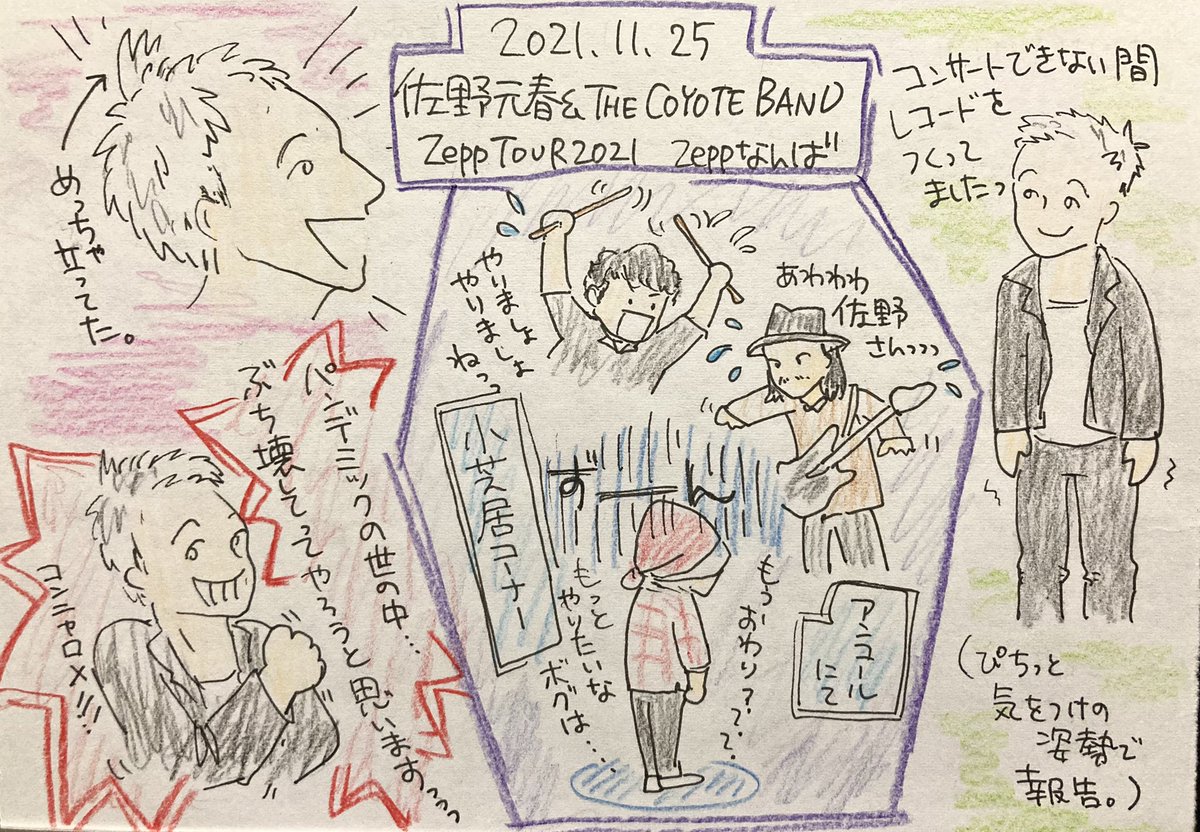 2021.11.25
佐野元春& THE COYOTE BAND
Zepp TOUR 2021 Zeppなんば
めっちゃ
立ってた。
コンサートできない間
レコードを
つくって
ましたっ
やりましょ
やりましょ
ねっっ
あわわわ
佐野
さんっっっ
小芝居コーナー
ずーん
もう
おわり？？？？
もっと
やりたいな
ボクは…
アンコール
にて
パンデミックの世の中…
ぶち壊してってやろうと思いますっっっ
コンニャロメ!!!
(ぴちっと
気をつけの
姿勢で
報告。)